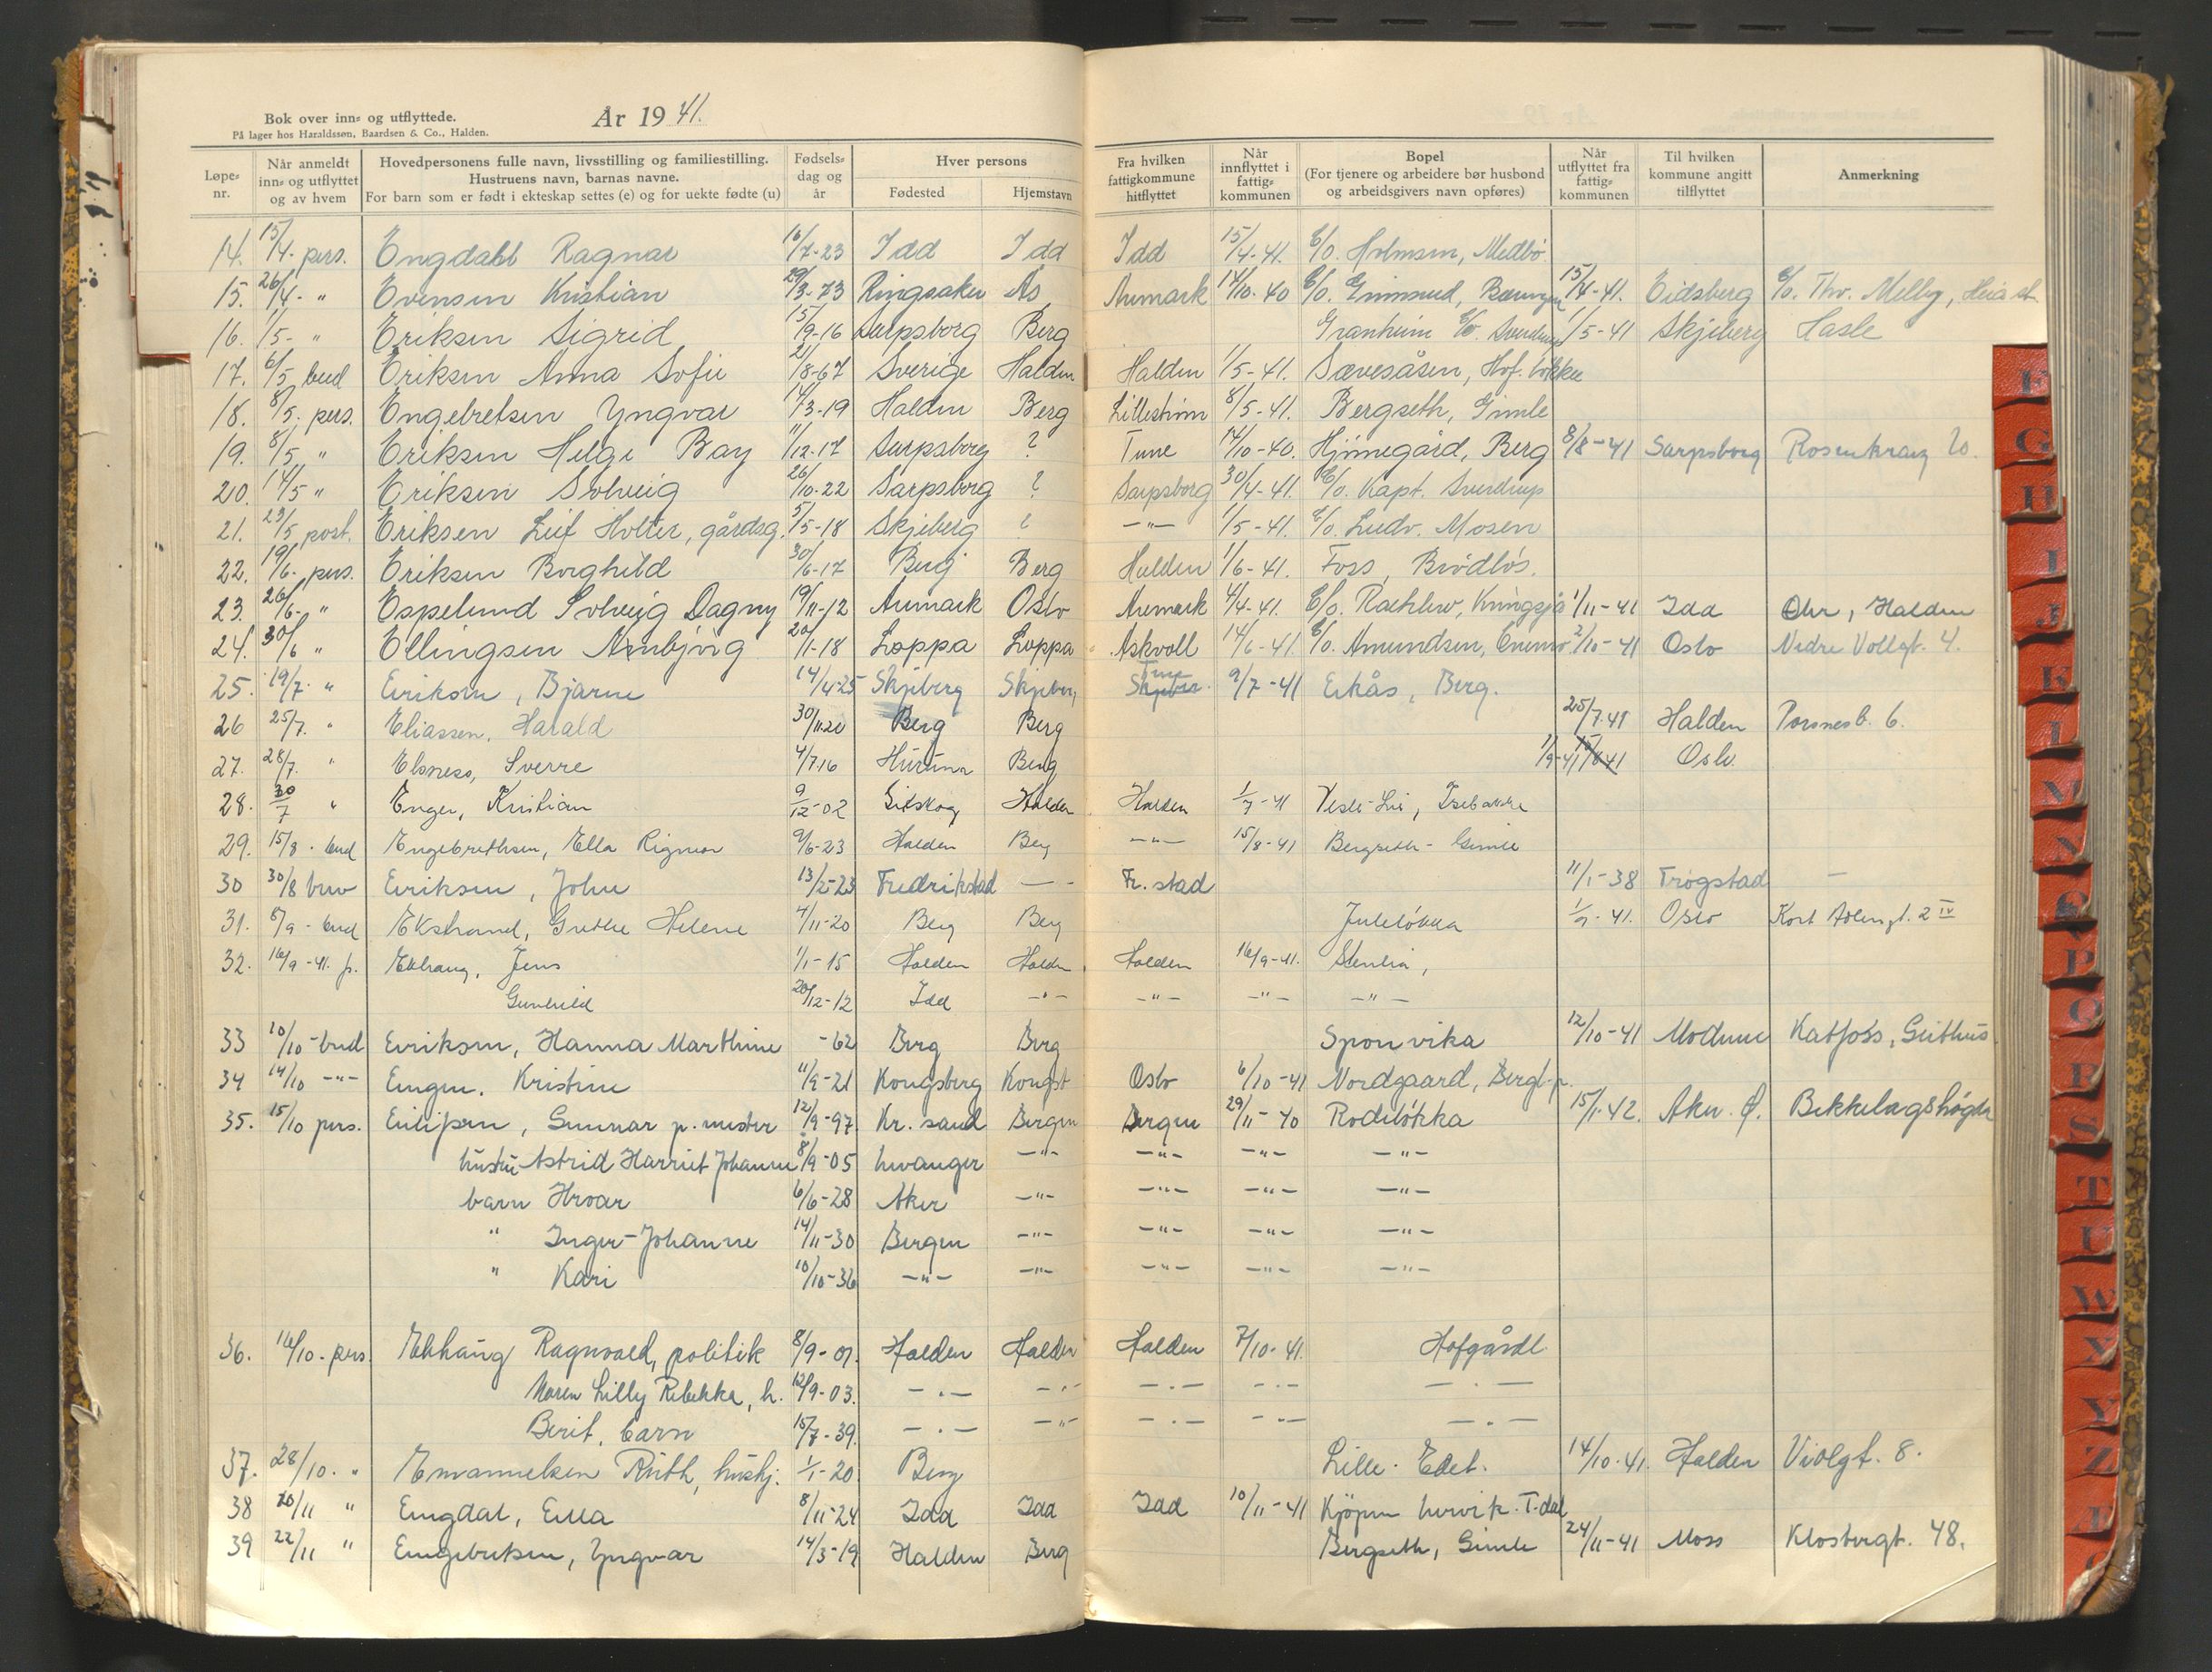 Bok over inn- og utflyttede.
På lager hos Haraldssøn, Baardsen & Co., Halden.
År 1941.
Løpenr. | Når anmeldt inn- og utflyttet og av hvem | Hovedpersonens fulle navn, livsstilling og familiestilling. Hustruens navn, barnas navne. For barn som er født i ekteskap settes (e) og for uekte fødte (u) | Fødselsdag og år | Hver persons Fødested | Hjemstavn | Fra hvilken fattigkommune hitflyttet | Når innflyttet i fattigkommunen | Bopel (For tjenere og arbeidere bør husbond og arbeidsgivers navn opføres) | Når utflyttet fra fattigkommunen | Til hvilken kommune angitt tilflyttet | Anmerkning
14. 15/4- pers. Engdahl Ragnar 16/7-23 Idd Idd Idd 15/4-41. C/o. Holmsen, Medbø
15. 26/4- " Evensen Kristian 29/3-73 Ringsaker Ås Aremark 14/10-40 C/o. 15/4-41. Eidsberg C/o. Thv. Melby, Heia st.
16. 1/5- " Eriksen Sigrid 15/9-16 Sarpsborg Berg Granheim C/o. Sverdrup 1/5-41 Skjeberg Hasle
17. 6/5 bud Eriksen Anna Sofie 21/8-67 Sverige Halden Halden 1/5-41. Sævesåsen, Hof. løkke
18. 8/5. pers. Engebretsen Yngvar 14/3-19 Halden Berg Lillestrøm 8/5-41. Bergseth, Gimle
19. 8/5 " Eriksen Helge Bay 11/12-17 Sarpsborg ? Tune 14/10-40. Hjönnegård, Berg 8/8-41 Sarpsborg Rosenkranz 20.
20. 14/5 " Eriksen Solveig 26/10-22 Sarpsborg ? Sarpsborg 30/4-41. C/o. Kapt. Sverdrup
21. 23/5 post. Eriksen Leif Holter, gårdsg. 5/5-18 Skjeberg ? -"- 1/5-41. C/o. Ludv. Mosen
22. 19/6- pers. Eriksen Borghild 30/6-17 Berg Berg Halden 1/6-41. Foss, Brødløs.
23. 26/6- " Espelund Solveig Dagny 19/11-12 Aremark Oslo Aremark 4/4-41. C/o. Kringsjå 1/11-41 Idd Ohr, Halden
24. 30/6 " Ellingsen Arnbjørg 20/1-18 Loppa Loppa Askvoll 14/6-41. C/o. Amundsen, 2/10-41 Oslo Nedre Vollgt. 4.
25. 19/7. " Eriksen, Bjarne 14/4-25 Skjeberg Skjeberg Tune 9/7-41 Eikås, Berg.
26 25/7. " Eliassen, Harald 30/11.20 Berg Berg 25/7.41 Halden Porsnesb. 6.
27. 28/7. " Elsness, Sverre 4/7.16 Hurum Berg 1/9-41 Oslo.
28. 30/7 " Enger, Kristian 9/12-02 Halden Halden 1/7-41 Vesle-Lie, Isebakke
29. 15/8. bud Engebrethsen, Ella Rigmor 9/6-23 Halden Berg -"- 15/8-41 Bergseth - Gimle
30 30/8 brev Eriksen, John 13/2-23 Fredrikstad - - Fr. stad 11/1-38 Trøgstad -
31. 8/9 - bud Ekstrand, Grethe Helene 4/11-20 Berg Berg Juleløkka 1/9-41. Oslo Kort Adelersgt. 2 IV
32. 16/9-41. p. Ekhaug, Jens 1/1-15 Halden Halden Halden 16/9-41. Stenlia,
Gunhild 20/12-12 Idd -"- -"- -"- -"-
33 10/10-bud Eriksen, Hanna Marthine -62 Berg Berg Sponvika 12/10-41 Modum Katfoss, Geithus
34 14/10 -"- Engen. Kristine 11/9-21 Kongsberg Kongsb Oslo 6/10-41 Nordgaard, Bergt.p.
35. 15/10 pers. Gunnar p. mester 12/9-97 Kr. sand Bergen Bergen 29/11-40 Rødeløkka 15/1.42. Aker. Ø. Bekkelagshøgda
hustru Astrid Harriet Johanne 8/9-05 Levanger -"- -"- -"- -"-
barn Hroar 6/6-28 Aker -"- -"- -"- -"-
" Inger-Johanne 14/11-30 Bergen -"- -"- -"- -"-
" Kari 10/10-36 -"- -"- -"- -"- -"-
36. 16/10-pers. Ekhaug Ragnvald, politik 8/9-01. Halden Halden Halden 7/10-41. Hofgårdl.
Maren Lilly Rebekka, h. 12/9-03. -"- -"- -"- -"- -"-
Berit, barn 15/7-39. -"- -"- -"- -"- -"-
37. 28/10. " Emanuelsen Ruth, hushj. 1/1-20 Berg Lille. Edet. 14/10-41. Halden Violgt. 8.
38 20/11 " Engdal, Ella 8/11-24 Idd Idd Idd 10/11-41 Kjøpm T-dal
39 22/11 " Engebretsen, Yngvar 14/3-19 Halden Berg Bergseth, Gimle 24/11-41 Moss Klosbergt. 48.
E
G
H
I
J
K
L
M
N
O
P
Q
R
S
T
U
W
X
Y
Z